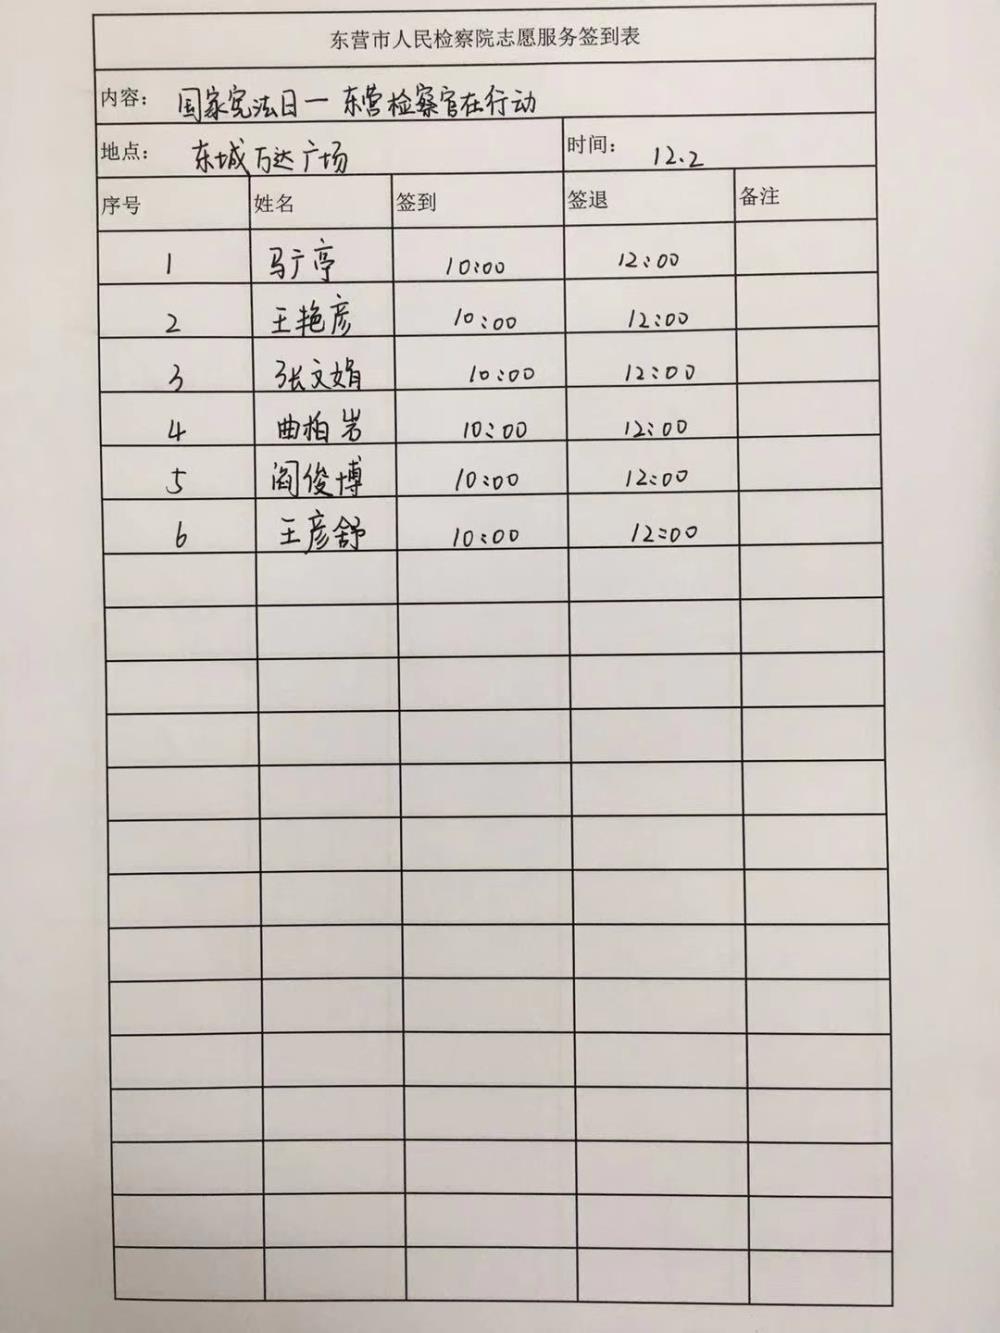 东营市人民检察院志愿服务签到表
内容： 国家宪法日一东营检察官在行动
地点： 东城万达广场 时间： 12.2
序号 姓名 签到 签退 备注
1 马广亭 10:00 12:00
2 王艳彦 10:00 12:00
3 张文娟 10:00 12:00
4 曲柏岩 10:00 12:00
5 阎俊博 10:00 12:00
6 王彦舒 10:00 12:00